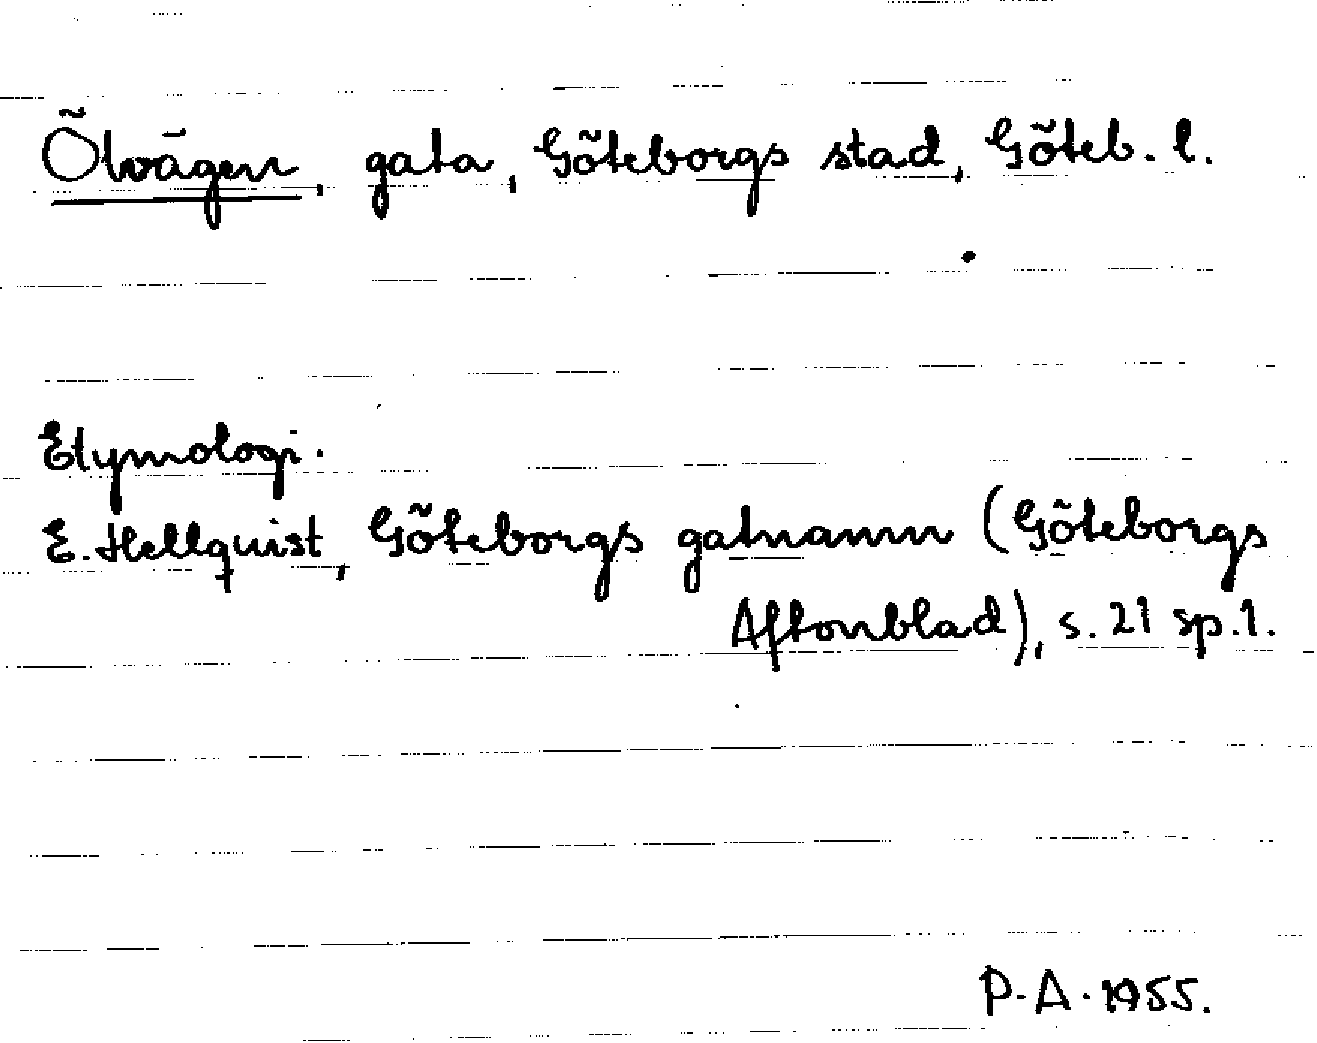 Ölvägen, gata, Göteborgs stad, Göteb. l.
Etymologi.
E. Hellquist, Göteborgs gatnamn (Göteborgs
Aftonblad), s. 21 sp. 1.
P-A. 1955.